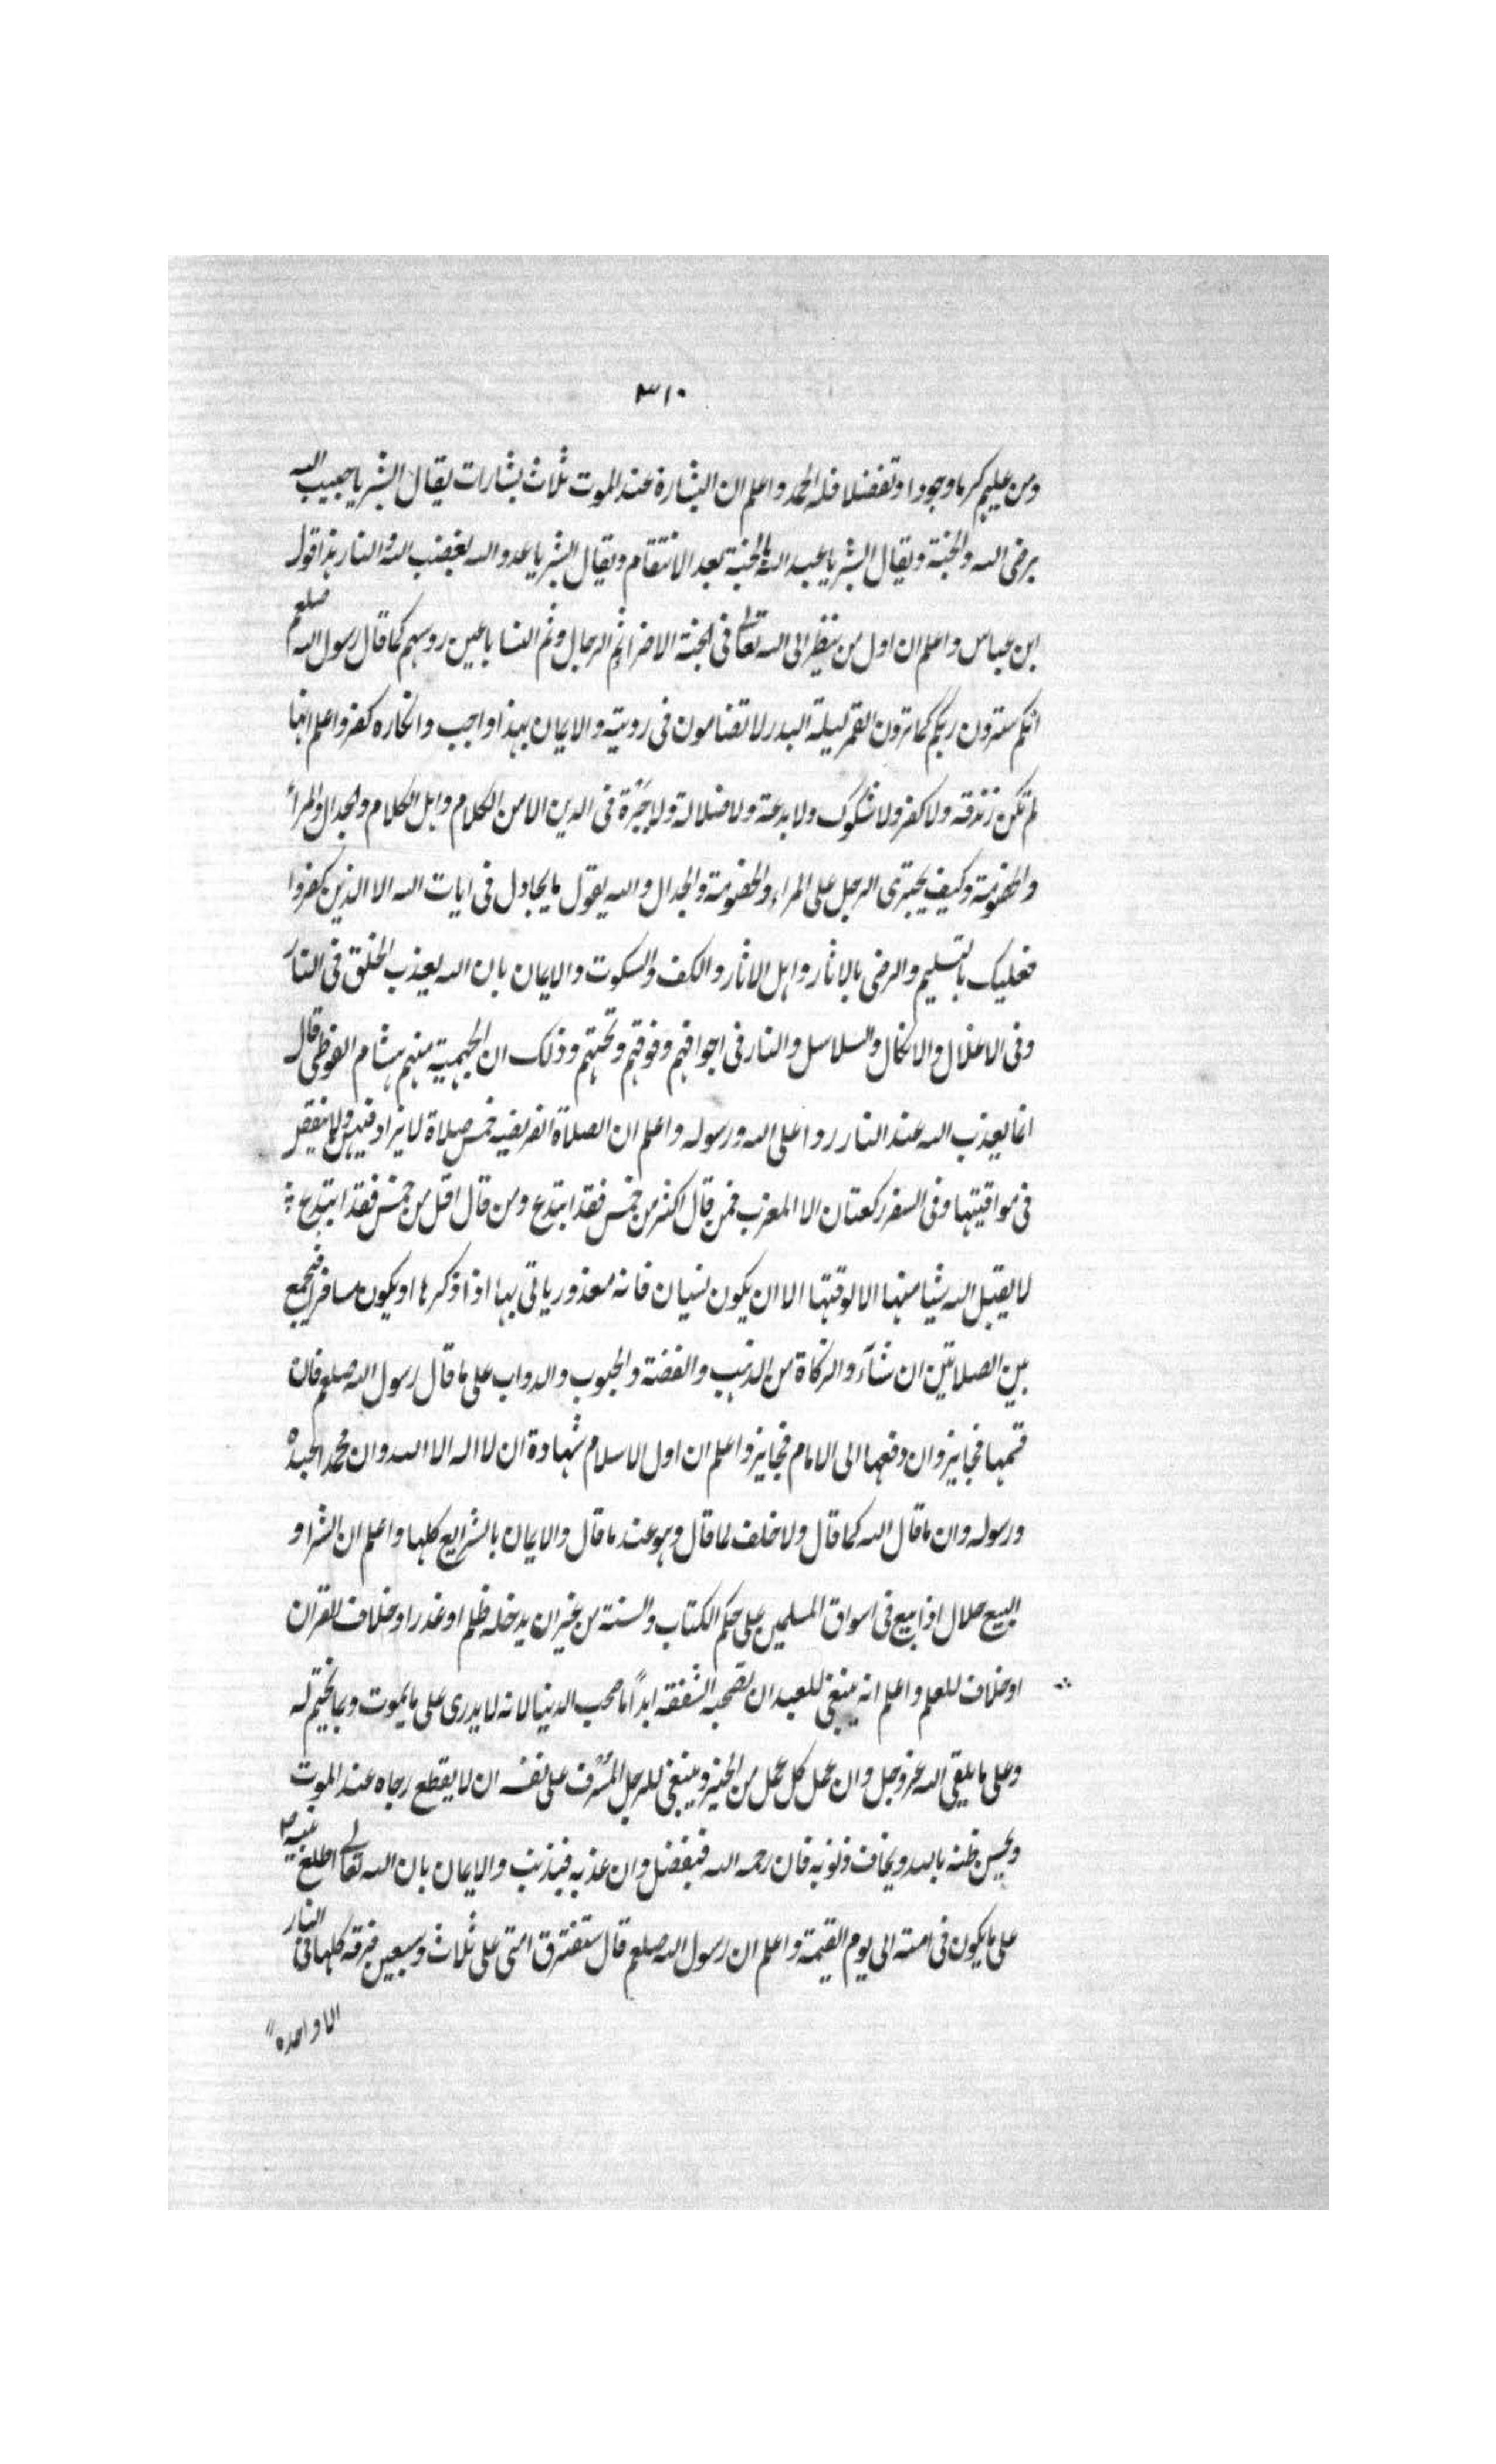 ٣١٠
ومن عليهم كرما وجودا وتفضلا فله الحمد واعلم ان البشارة عند الموت ثلاث بشارات يقال ابشر يا حبيب الله
برضى الله والجنة ويقال ابشر يا عبد الله بالجنة بعد الانتقام ويقال ابشر يا عدو الله بغضب الله والنار هذا قول
ابن عباس واعلم ان اول من ينظر الى الله تعالى فى الجنة الاضرا ثم الرجال وثم النسا باعين روسهم كما قال رسول الله صلعم
انكم سترون ربكم كما ترون القمر ليلة البدر لا تضامون فى رويته والايمان بهذا واجب وانكاره كفر واعلم انها
لم تكن زندقه ولا كفر ولا شكوك ولا بدعة ولا ضلالة ولا حيرة فى الدين الا من الكلام واهل الكلام والجدال والمرأ
والخصومة وكيف يجترى الرجل على المراء والخصومة والجدال والله يقول ما يجادل فى ايات الله الا الذين كفروا
فعليك بالتسليم والرضى بالاثار واهل الاثار والكف والسكوت والايمان بان الله يعذب الخلق فى النار
وفى الاغلال والانكال والسلاسل والنار فى اجوافهم وفوقهم وتحتهم وذلك ان الجهمية منهم هشام الفوطى قال
انما يعذب الله عند النار ردوا على الله ورسوله واعلم ان الصلاة الفريضه خمس صلاة لا يزاد فيهن ولا ينقص
فى مواقيتها وفى السفر ركعتان الا المغرب فمن قال اكثر من خمس فقد ابتدع ومن قال اقل من خمس فقد ابتدع
لا يقبل الله شيا منها الا لوقتها الا ان يكون نسيان فانه معذور ياتى بها اذا ذكرها او يكون مسافر فيجمع
بين الصلاتين ان شآء والزكاة من الذهب والفضة والحبوب والدواب على ما قال رسول الله صلعم فان
قسمها فجايز وان دفعها الى الامام فجايز واعلم ان اول الاسلام شهادة ان لا اله الا الله وان محمدا عبده
ورسوله وان ما قال الله كما قال ولا خلف لما قال وهو عند ما قال والايمان بالشرايع كلها واعلم ان الشرا و
البيع حلال اذا بيع فى اسواق المسلمين على حكم الكتاب والسنة من غير ان يدخله ظلم او غدر او خلاف القران
او خلاف للعلم واعلم انه ينبغى للعبد ان تصحبه الشفقه ابدًا ما صحب الدنيا لانه لا يدرى على ما يموت وبما يختم له
وعلى ما يلقى الله عز وجل وان عمل كل عمل من الخير وينبغى للرجل المسرف على نفسه ان لا يقطع رجاه عند الموت
ويحسن ظنه بالله ويخاف ذنوبه فان رحمه الله فبفضل وان عذبه فبذنب والايمان بان الله تعالى اطلع نبيه
على ما يكون فى امته الى يوم القيمة واعلم ان رسول الله صلعم قال ستفترق امتى على ثلاث وسبعين فرقه كلها فى النار
الا واحده